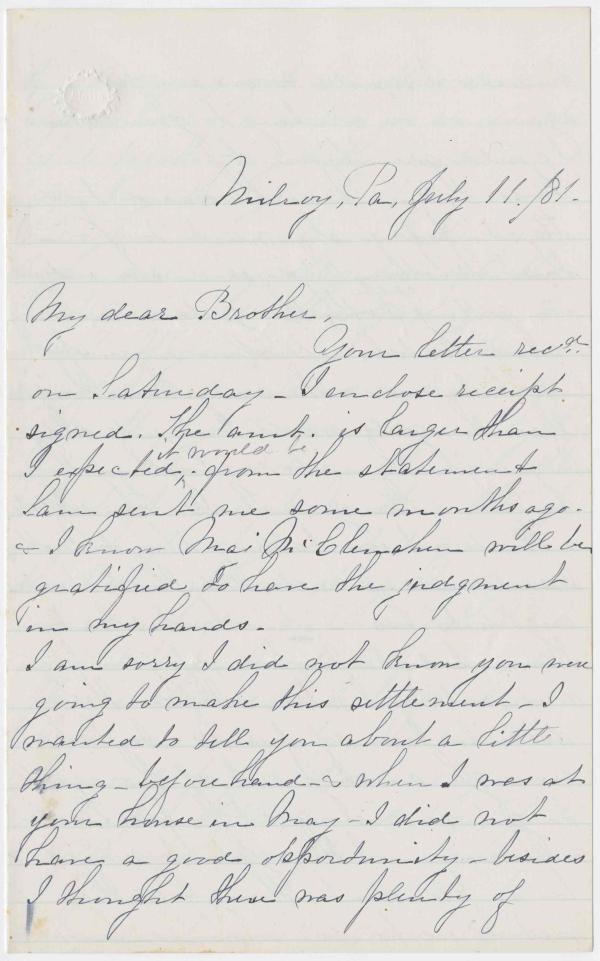 Milroy, Pa, July 11, /81.
My dear Brother,
Your letter recd.
on Saturday - I enclose receipt
signed. The amt. is larger than
it would be
I expected, from the statement
Sam sent me some months ago -
& I know Maj Mc Clenahen will be
gratified to have the judgment
in my hands -
I am sorry I did not know you were
going to make this settlement - I
wanted to tell you about a little
thing - before hand - & when I was at
your house in May - I did not
have a good opportunity - besides
I thought there was plenty of